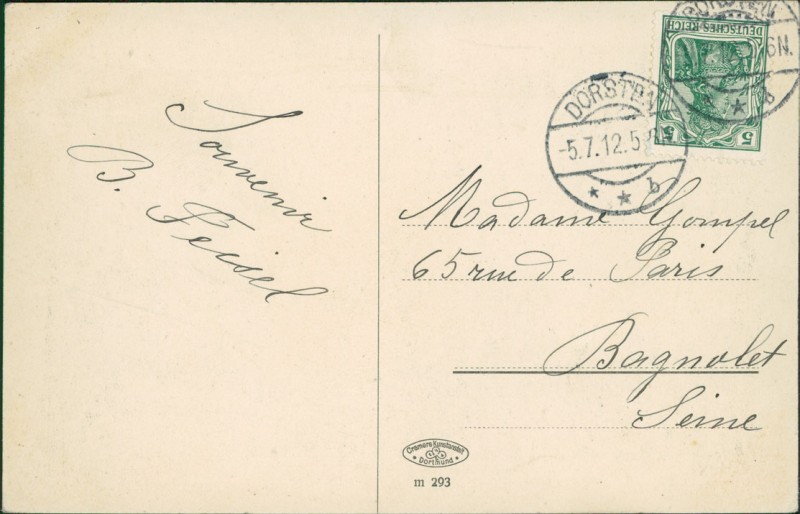 Souvenir
B. Feisel
DORSTEN
DEUTSCHES REICH
5
5
6N.
* * b
DORSTEN
-5.7.12.5
* * b
Madame Gompel
65 rue de Paris
Bagnolet
Seine
Cramers Kunstanstalt
Dortmund
m 293